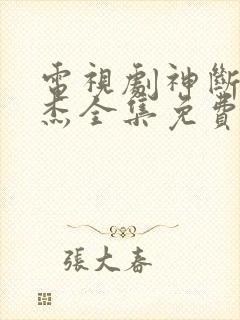 電視劇神斷
杰全集免費
張大春